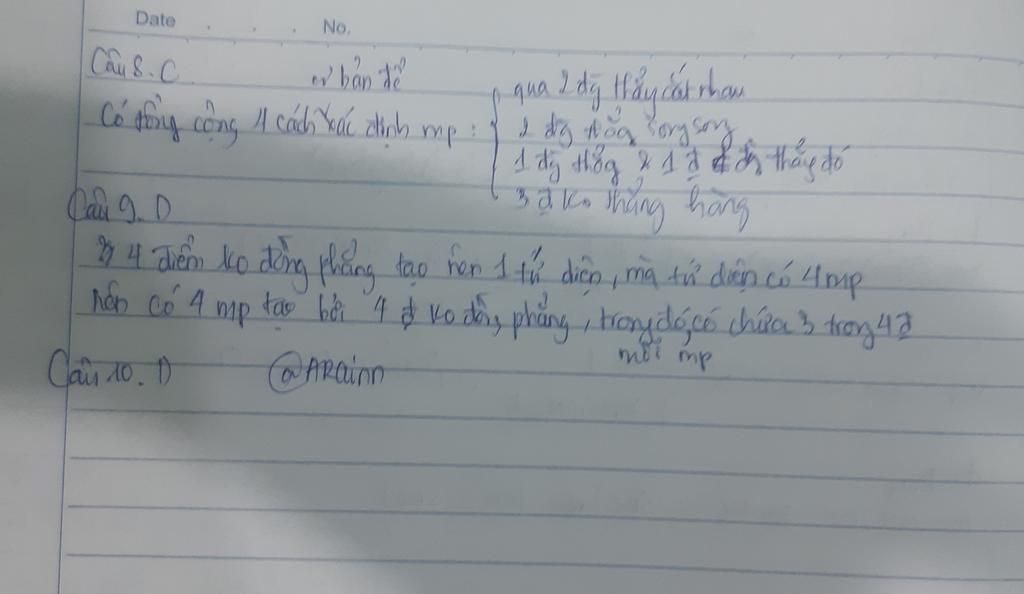 Date . . . No.
Câu 8. C
cơ bản để
qua 2 đg thẳg cắt nhau
Có tổng cộng 4 cách xác định mp :
2 đg thẳg song song
1 đg thẳg & 1 đ đg thẳg đó
3 đ ko thẳng hàng
Câu 9. D
4 điểm ko đồng phẳng tạo nên 1 tứ diện, mà tứ diện có 4 mp
nên có 4 mp tạo bởi 4 đ ko đồng phẳng, trong đó, có chứa 3 trong 4 đ
mỗi mp
Câu 10. D @ARainn